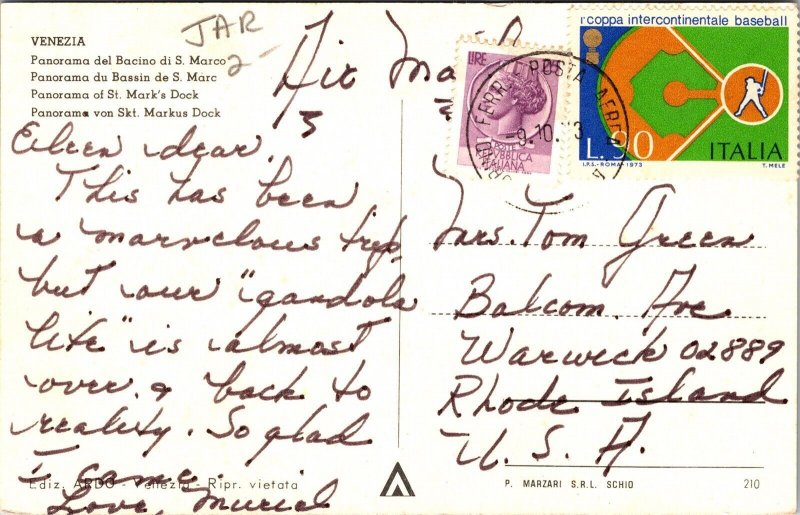 JAR
2-
VENEZIA
Panorama del Bacino di S. Marco
Panorama du Bassin de S. Marc
Panorama of St. Mark's Dock
Panorama von Skt. Markus Dock
Air Mail
Eileen dear,
This has been
a marvelous trip,
but our "gandola
life" is almost
over & back to
reality. So glad
I came.
Love, Muriel
Ediz. ARDO - Venezia - Ripr. vietata
LIRE
POSTE
REPUBBLICA
ITALIANA
POSTA AEREA
-9.10.73
1ª coppa intercontinentale baseball
L.90 ITALIA
I.P.S.-ROMA-1973 T. MELE
Mrs. Tom Green
Balcom Ave.
Warwick 02889
Rhode Island
U. S. A.
P. MARZARI S.R.L. SCHIO 210